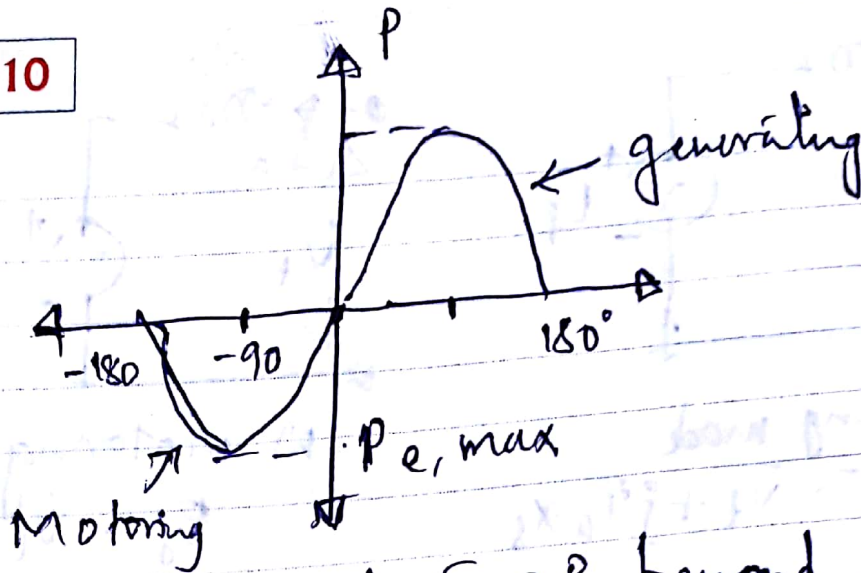 10
P
generating
180°
-180
-90
Pe, max
Motoring